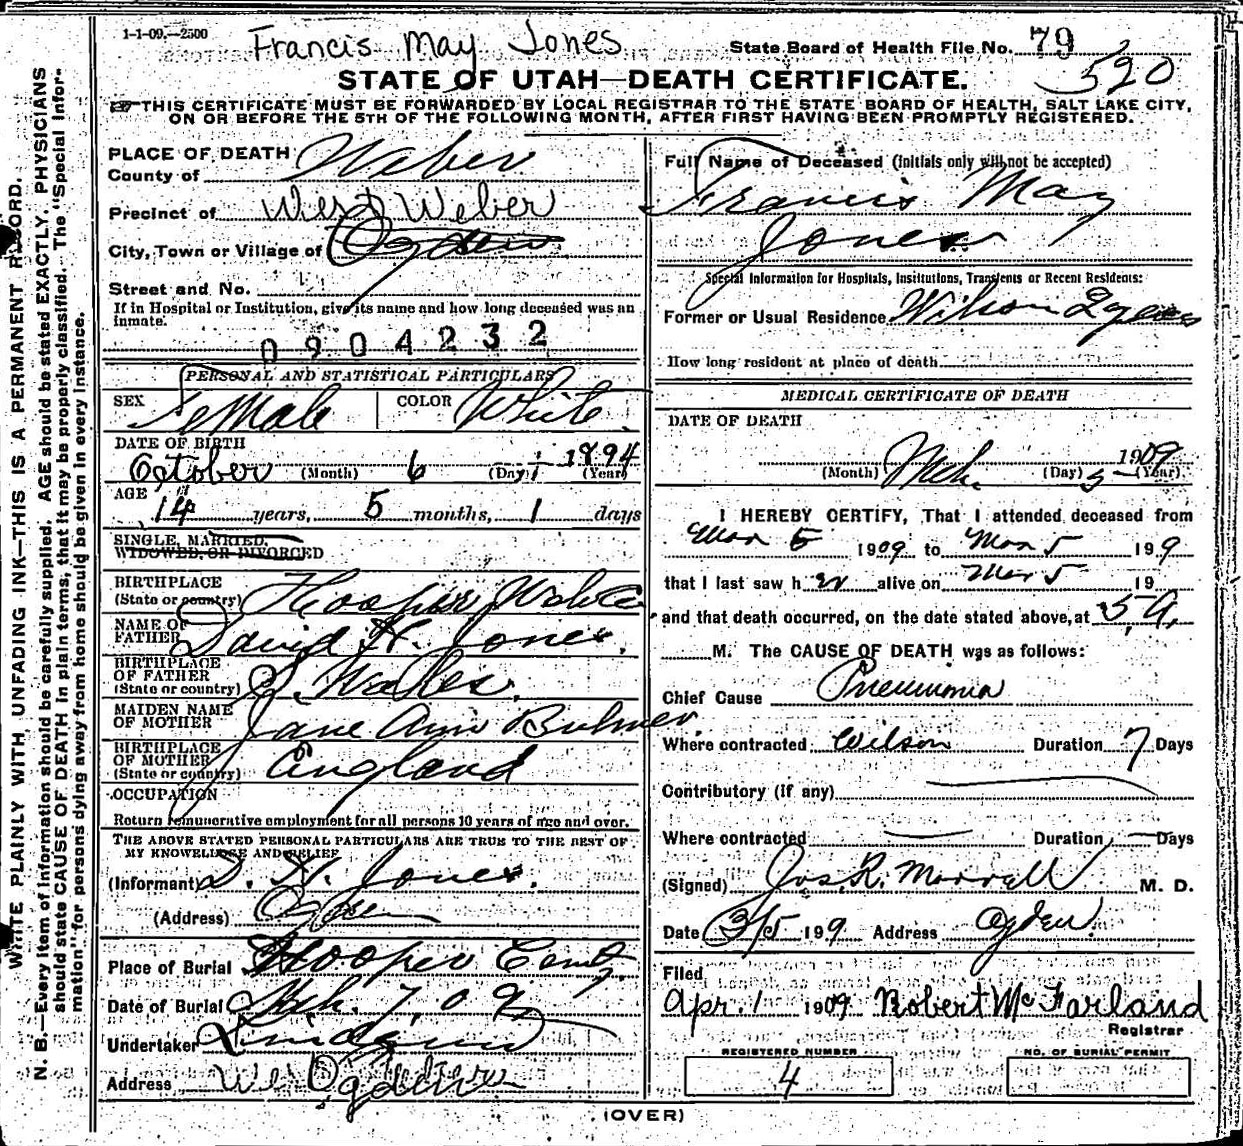 1-1-09.—2500
Francis May Jones
State Board of Health File No. 79
520
STATE OF UTAH—DEATH CERTIFICATE.
THIS CERTIFICATE MUST BE FORWARDED BY LOCAL REGISTRAR TO THE STATE BOARD OF HEALTH, SALT LAKE CITY,
ON OR BEFORE THE 5TH OF THE FOLLOWING MONTH, AFTER FIRST HAVING BEEN PROMPTLY REGISTERED.
WRITE PLAINLY WITH UNFADING INK—THIS IS A PERMANENT RECORD.
N. B.—Every item of information should be carefully supplied. AGE should be stated EXACTLY. PHYSICIANS
should state CAUSE OF DEATH in plain terms, that it may be properly classified. The "Special Infor-
mation" for persons dying away from home should be given in every instance.
PLACE OF DEATH
County of Weber
Precinct of West Weber
City, Town or Village of Ogden
Street and No.
If in Hospital or Institution, give its name and how long deceased was an
inmate.
0904232
PERSONAL AND STATISTICAL PARTICULARS
SEX Female COLOR White
DATE OF BIRTH
October (Month) 6 (Day) 1894 (Year)
AGE
14 years, 5 months, 1 days
SINGLE, MARRIED,
WIDOWED, OR DIVORCED
BIRTHPLACE
(State or country) Hooper
NAME OF
FATHER David H. Jones.
BIRTHPLACE
OF FATHER
(State or country) S. Wales.
MAIDEN NAME
OF MOTHER Jane Ann
BIRTHPLACE
OF MOTHER
(State or country) England
OCCUPATION
Return remunerative employment for all persons 10 years of age and over.
THE ABOVE STATED PERSONAL PARTICULARS ARE TRUE TO THE BEST OF
MY KNOWELDGE AND BELIEF
(Informant) D. H. Jones.
(Address) Ogden
Place of Burial Hooper Cemt.
Date of Burial Mch. 7, 09
Undertaker Lindquist
Address
Full Name of Deceased (Initials only will not be accepted)
Francis May
Jones
Special Information for Hospitals, Institutions, Transients or Recent Residents:
Former or Usual Residence Wilson
How long resident at place of death
MEDICAL CERTIFICATE OF DEATH
DATE OF DEATH
(Month) Mch. (Day) 5 1909 (Year)
I HEREBY CERTIFY, That I attended deceased from
Mar 5 1909 to Mar 5 199
that I last saw her alive on Mar 5 19
and that death occurred, on the date stated above, at 5 A.
M. The CAUSE OF DEATH was as follows:
Chief Cause Pneumonia
Where contracted Wilson Duration 7 Days
Contributory (if any)
Where contracted Duration Days
(Signed) Jos. R. Morrell M. D.
Date 3/5 199 Address Ogden.
Filed
Apr. 1 1909 Robert McFarland
Registrar
REGISTERED NUMBER
4
NO. OF BURIAL PERMIT
(OVER)